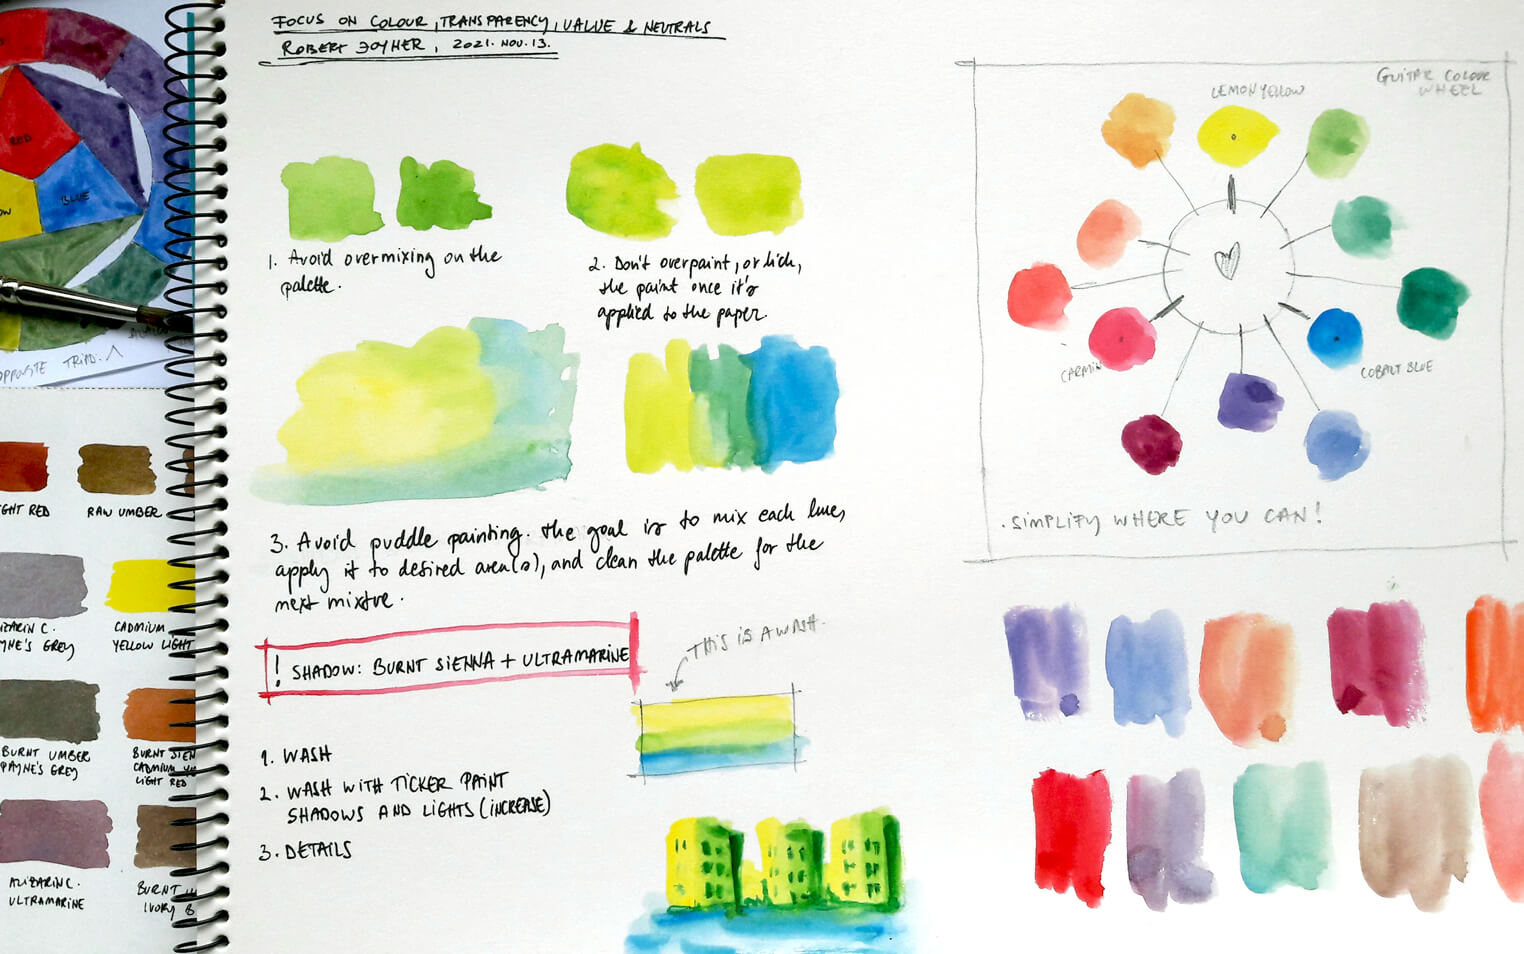 FOCUS ON COLOUR, TRANSPARENCY, VALUE & NEUTRALS
ROBERT JOYNER, 2021. NOV. 13.
1. Avoid overmixing on the
palette.
2. Don't overpaint, or lick,
the paint once it's
applied to the paper.
3. Avoid puddle painting. the goal is to mix each hue,
apply it to desired area(s), and clean the palette for the
next mixture.
! SHADOW: BURNT SIENNA + ULTRAMARINE
THIS IS A WASH.
1. WASH
2. WASH WITH TICKER PAINT
SHADOWS AND LIGHTS (INCREASE)
3. DETAILS
GUITAR COLOUR
WHEEL
LEMON YELLOW
CARMIN
COBALT BLUE
. SIMPLIFY WHERE YOU CAN!
RED
BLUE
OW
OPPOSITE TRIAD.
GHT RED
RAW UMBER
IZARIN C.
YNE'S GREY
CADMIUM
YELLOW LIGHT
BURNT UMBER
PAYNE'S GREY
BURNT SIEN
CADMIUM YE
LIGHT RED
ALIZARIN C.
ULTRAMARINE
BURNT
IVORY B